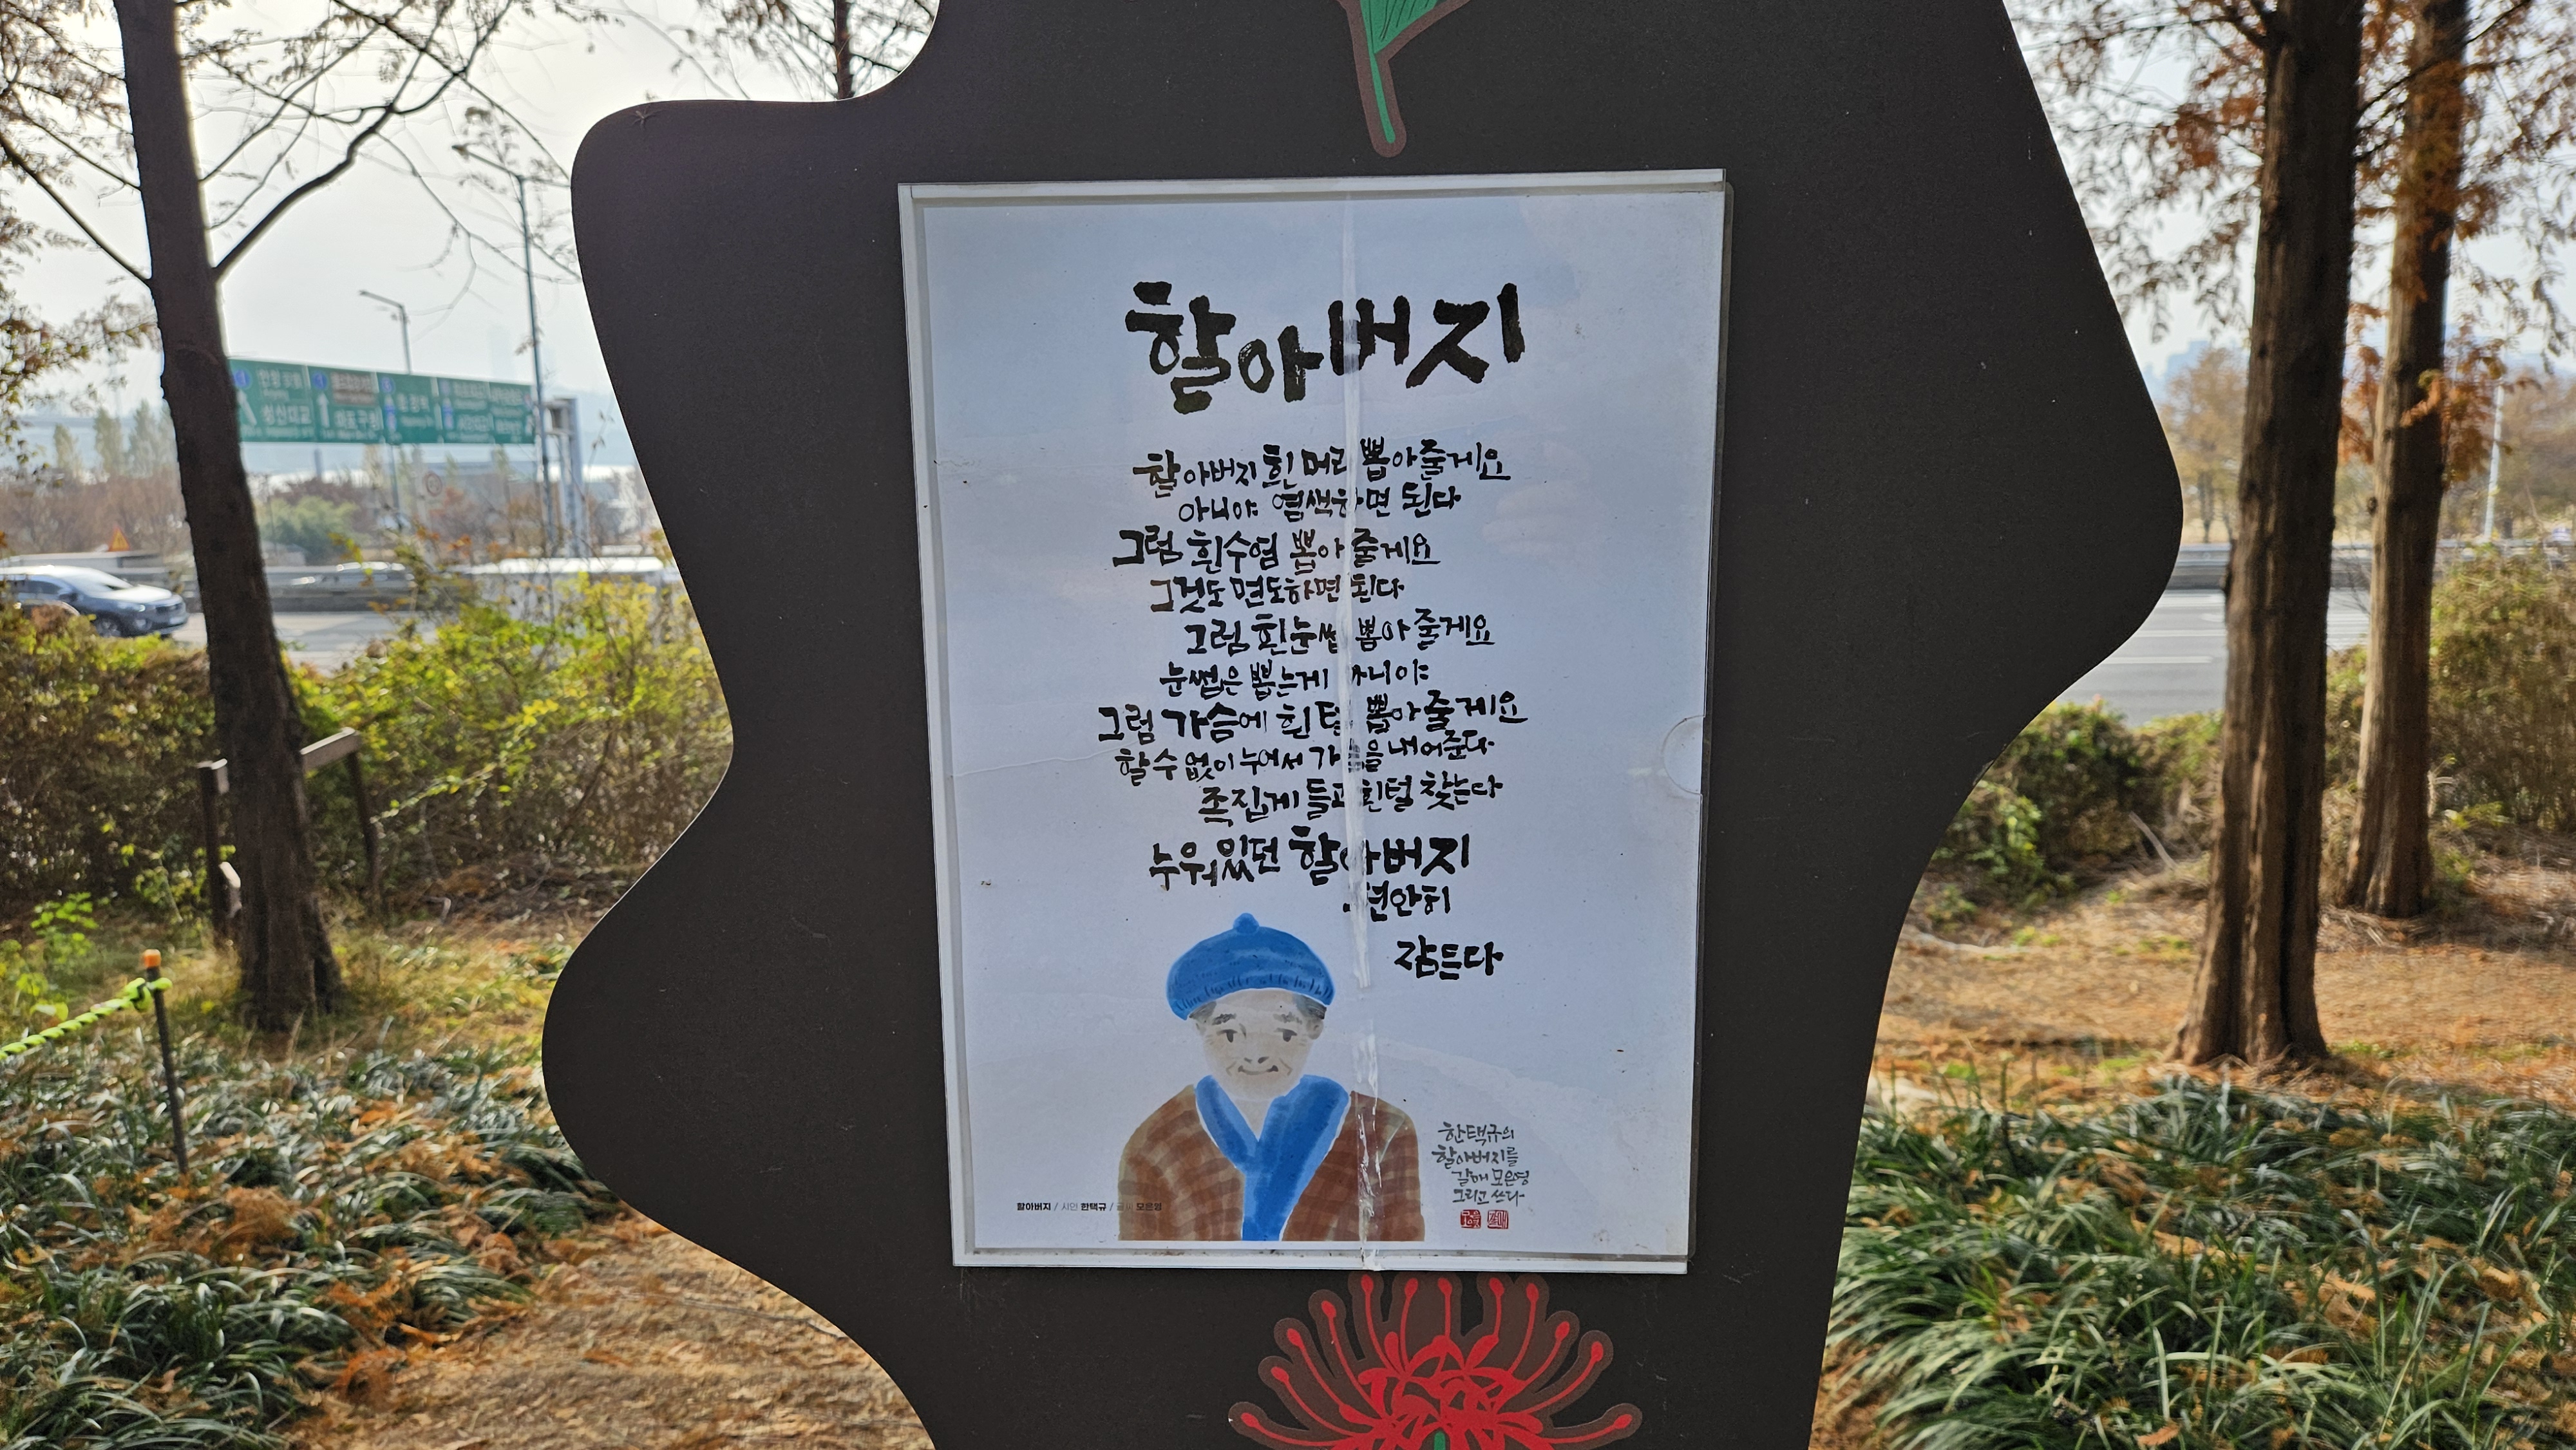 할아버지
할아버지 흰 머리 뽑아 줄게요
아니야 염색하면 된다
그럼 흰수염 뽑아 줄게요
그것도 면도하면 된다
그럼 흰눈썹 뽑아 줄게요
눈썹은 뽑는게 아니야
그럼 가슴에 흰 털 뽑아 줄게요
할 수 없이 누여서 가슴을 내어준다
족집게 들고 흰털 찾는다
누워있던 할아버지
편안히
잠든다
한택규의
할아버지를
갈매 모은영
그리고 쓰다
할아버지 / 시인 한택규 / 글씨 모은영
성산대교 마포구청